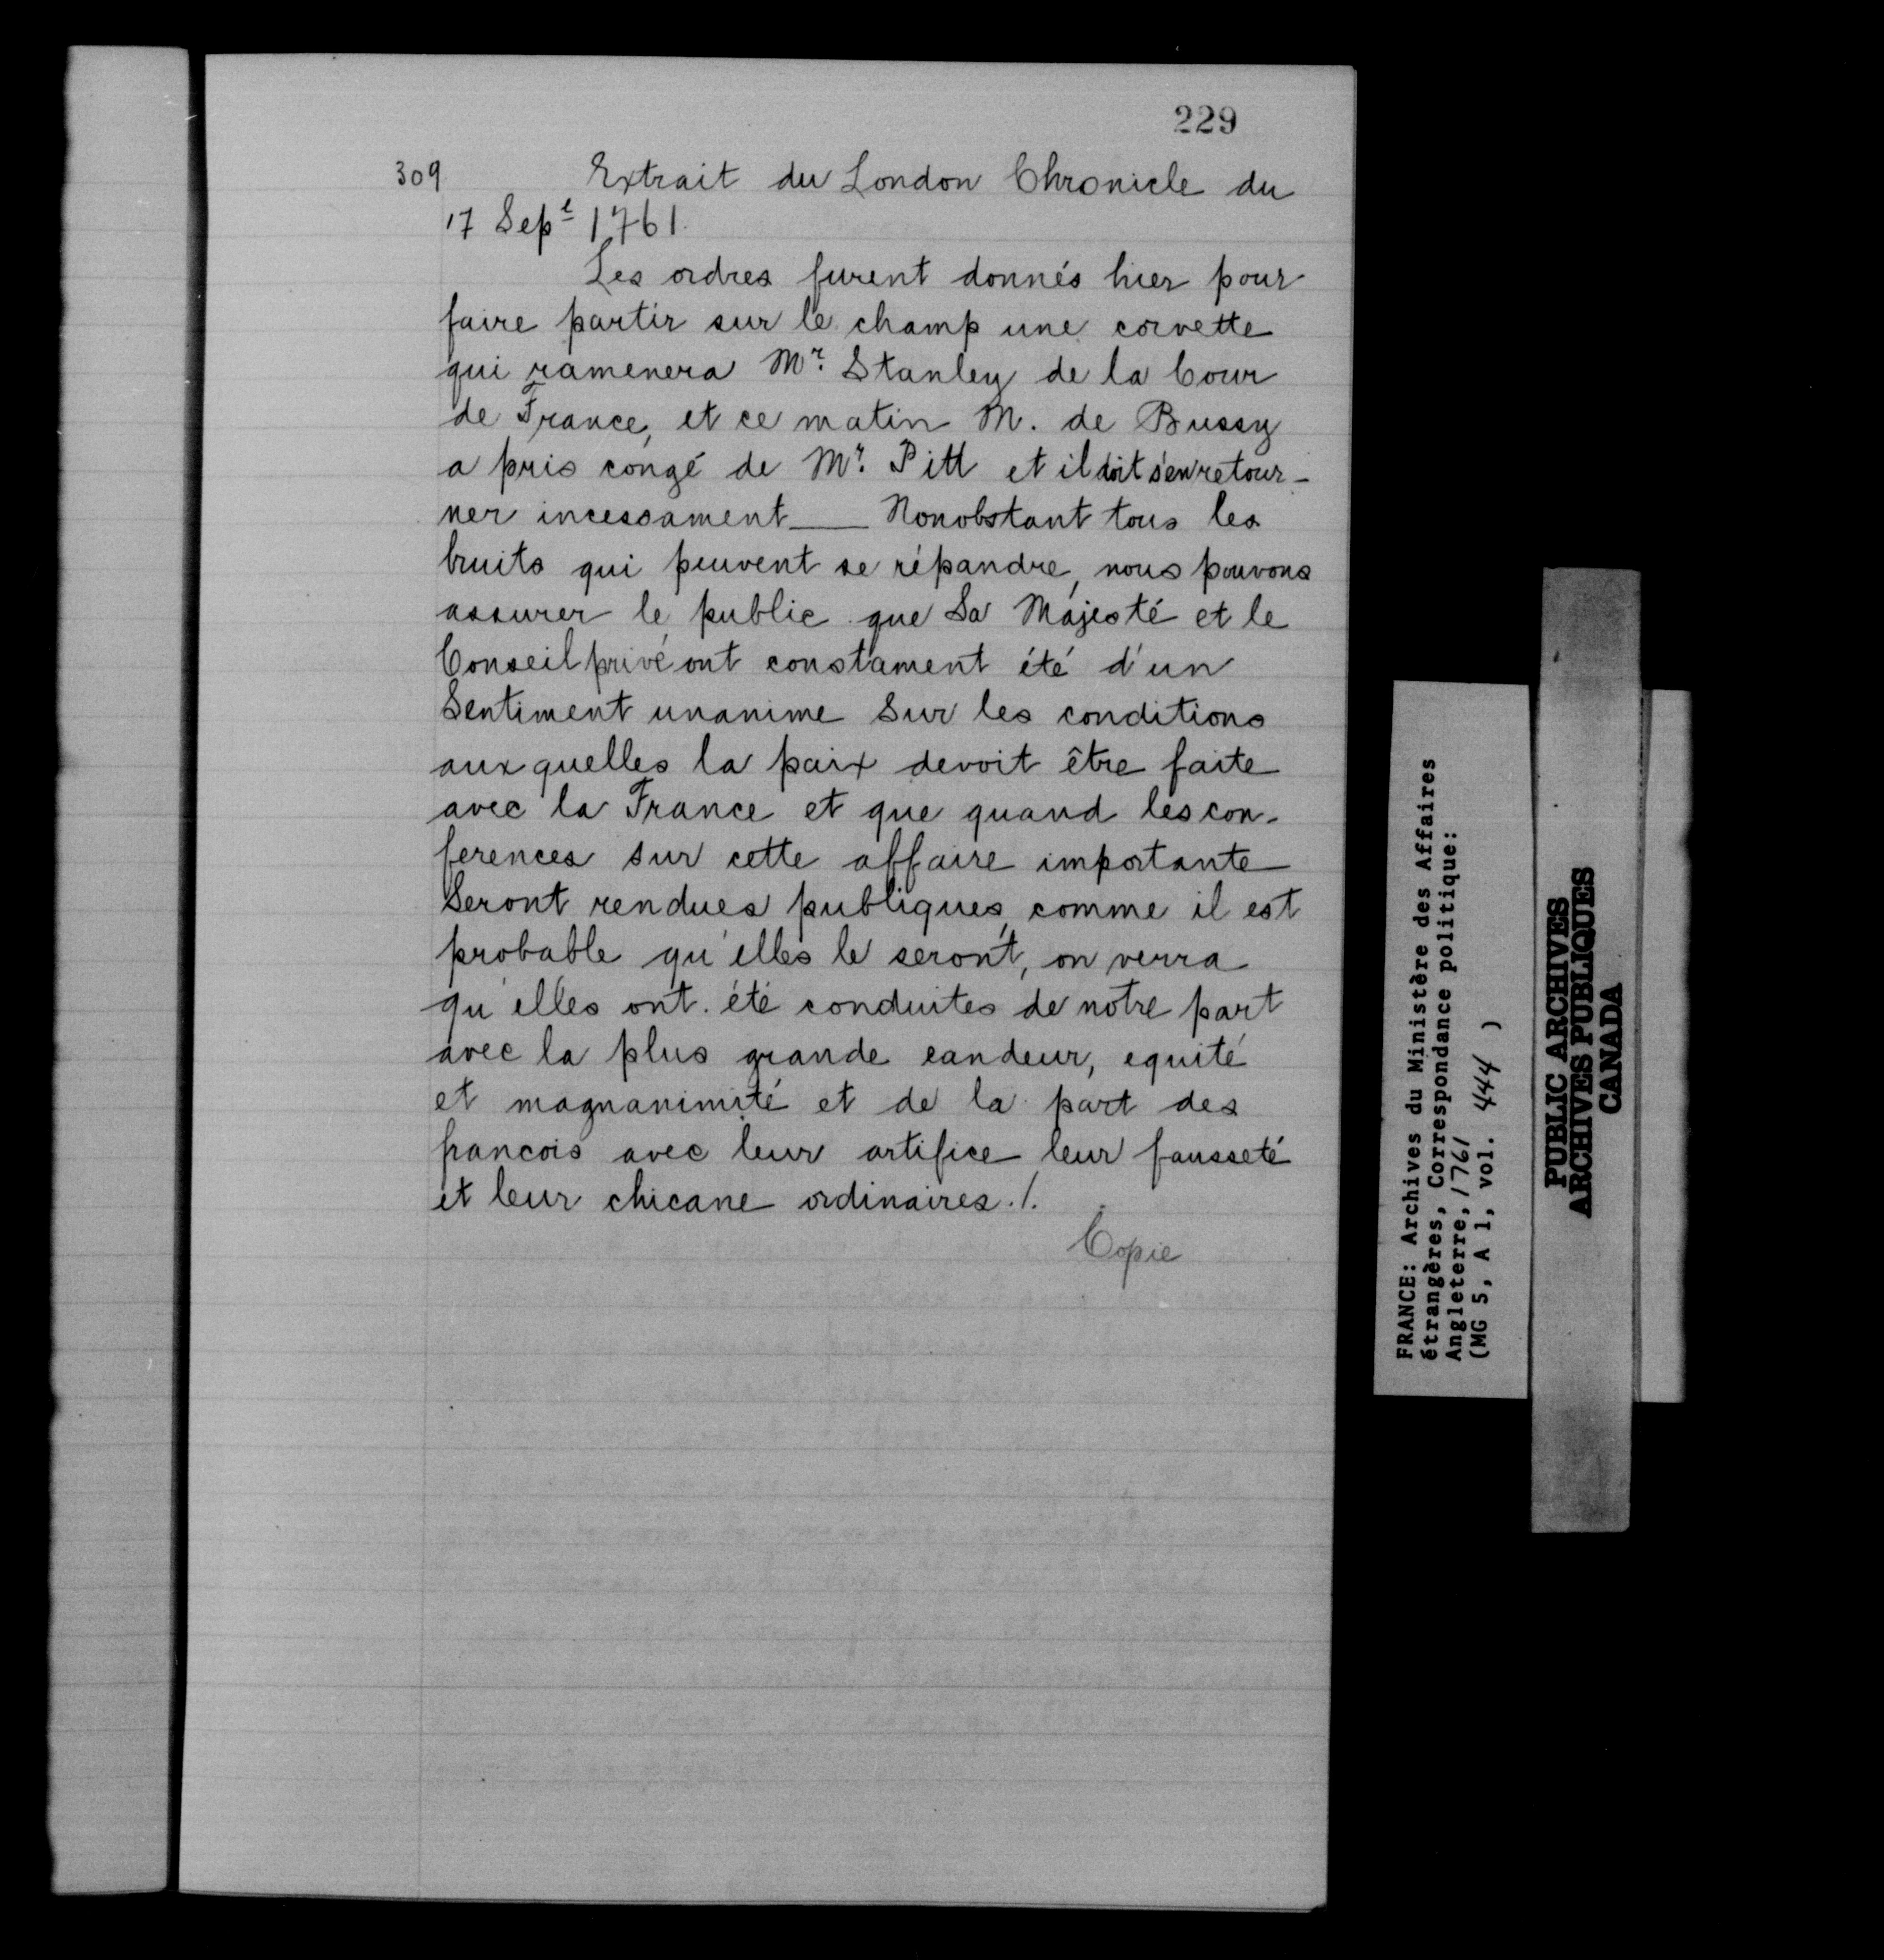 229
309 Extrait du London Chronicle du
17 Sept 1761.
Les ordres furent donnés hier pour
faire partir sur le champ une corvette
qui ramenera Mr. Stanley de la Cour
de France, et ce matin M. de Bussy
a pris congé de Mr. Pitt et il doit s'en retour-
ner incessament — Nonobstant tous les
bruits qui peuvent se répandre, nous pouvons
assurer le public que Sa Majesté et le
Conseil privé ont constament été d'un
Sentiment unanime Sur les conditions
aux quelles la paix devoit être faite
avec la France et que quand les con-
ferences sur cette affaire importante
Seront rendues publiques, comme il est
probable qu'elles le seront, on verra
qu'elles ont été conduites de notre part
avec la plus grande candeur, equité
et magnanimité et de la part des
francois avec leur artifice leur fausseté
et leur chicane ordinaires./.
Copie
FRANCE: Archives du Ministère des Affaires
étrangères, Correspondance politique:
Angleterre, 1761
(MG 5, A 1, vol. 444 )
PUBLIC ARCHIVES
ARCHIVES PUBLIQUES
CANADA